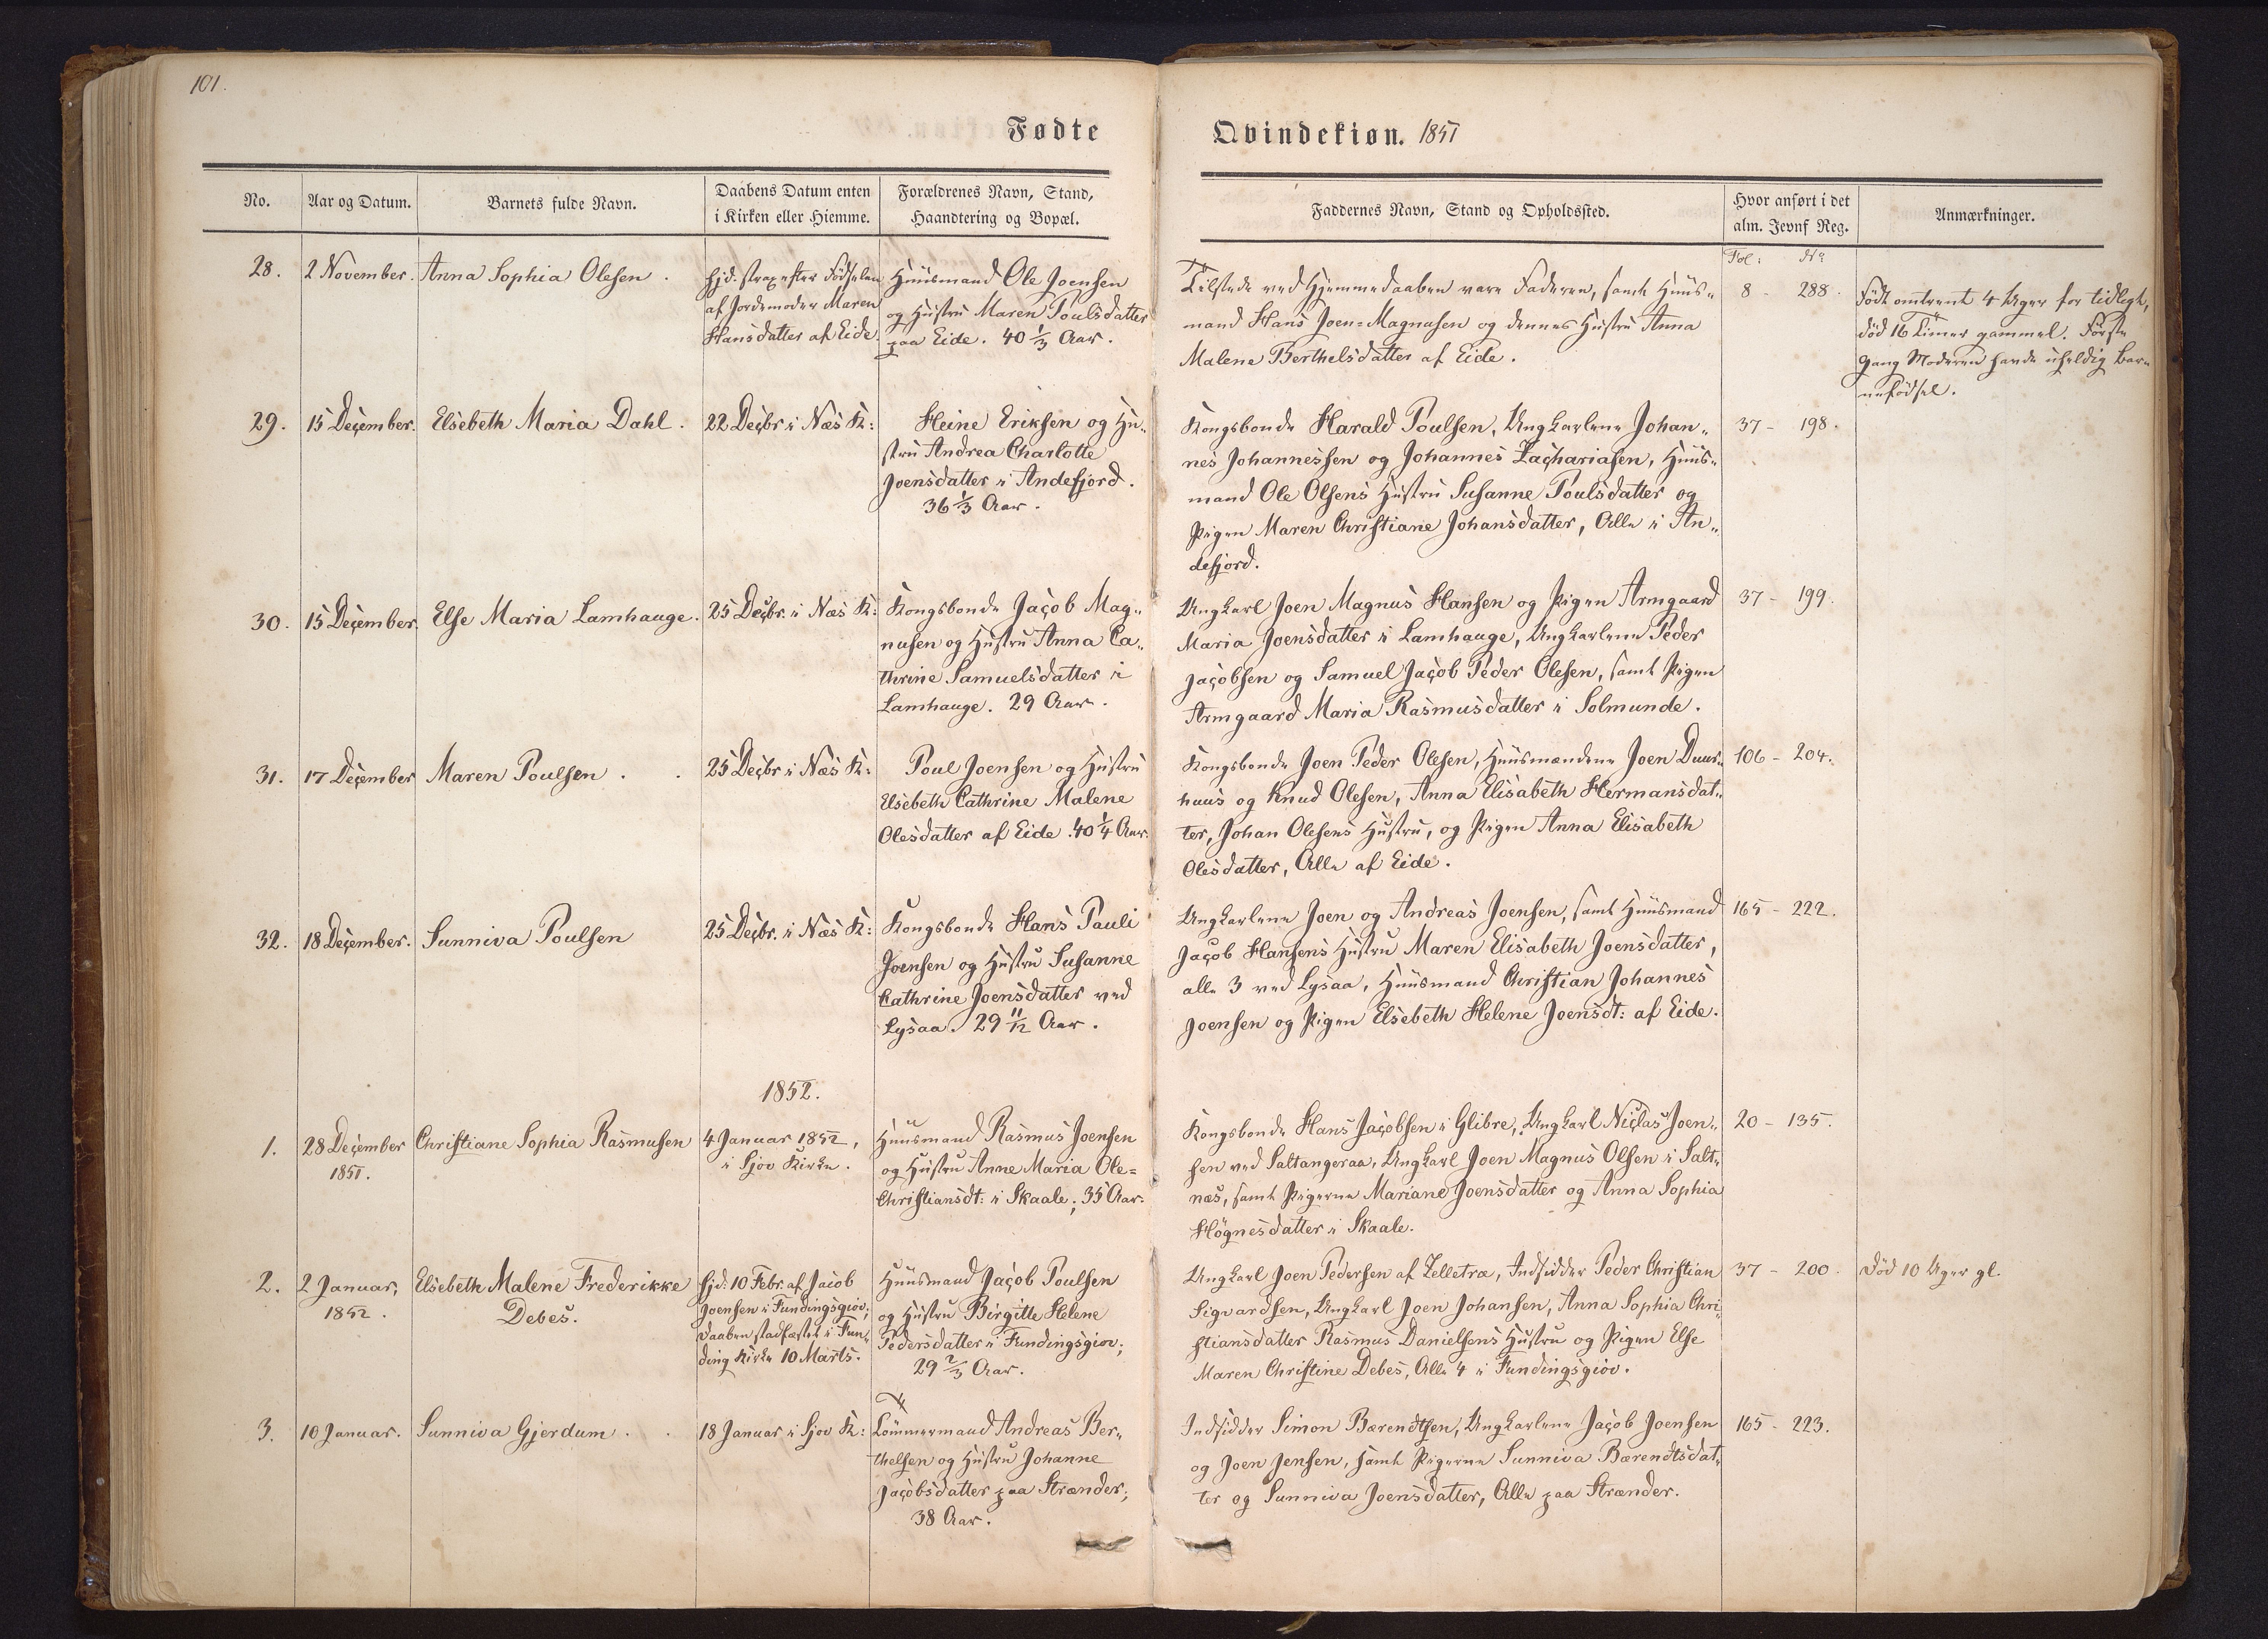 101.
Fødte
Qvindekiøn. 1851
No.
Aar og Datum.
Barnets fulde Navn.
Daabens Datum enten
i Kirken eller Hiemme.
Forældrenes Navn, Stand,
Haandtering og Bopæl.
Faddernes Navn, Stand og Opholdssted.
Hvor anført i det
alm. Jevnf Reg.
Anmærkninger.
Fol: No
28.
2 November.
Anna Sophia Olesen.
Hjd. strax efter Fødselen
af Jordemoder Maren
Hansdatter af Eide.
Huusmand Ole Joensen
og Hustru Maren Poulsdatter
paa Eide. 40 1/3 Aar.
Tilstede ved Hjemmedaaben vare Faderen, samt Huus„
mand Hans Joen=Magnusen og dennes Hustru Anna
Malene Berthelsdatter af Eide.
8 - 288.
Født omtrent 4 Uger for tidligt,
død 16 Timer gammel. Første
Gang Moderen havde uheldig Bar„
nefødsel.
29.
15 December.
Elsebeth Maria Dahl.
22 Decbr i Næs K:
Heine Eriksen og Hu„
stru Andrea Charlotte
Joensdatter i Andefjord.
36 1/3 Aar.
Kongsbonde Harald Poulsen, Ungkarlene Johan„
nes Johannessen og Johannes Zachariasen, Huus„
mand Ole Olsens Hustru Susanne Poulsdatter og
Pigen Maren Christiane Johansdatter, Alle i An„
defjord.
37 - 198.
30.
15 December.
Else Maria Lamhauge.
25 Decbr. i Næs K:
Kongsbonde Jacob Mag„
nusen og Hustru Anna Ca„
thrine Samuelsdatter i
Lamhauge. 29 Aar.
Ungkarl Joen Magnus Hansen og Pigen Armgaard
Maria Joensdatter i Lamhauge, Ungkarlene Peder
Jacobsen og Samuel Jacob Peder Olesen, samt Pigen
Armgaard Maria Rasmusdatter i Solmunde.
37 - 199.
31.
17 December
Maren Poulsen.
25 Decbr i Næs K:
Poul Joensen og Hustru
Elsebeth Cathrine Malene
Olesdatter af Eide. 40 1/4 Aar.
Kongsbonde Joen Peder Olesen, Huusmændene Joen Duur„
huus og Knud Olesen, Anna Elisabeth Hermansdat„
ter, Johan Olesens Hustru, og Pigen Anna Elisabeth
Olesdatter, Alle af Eide.
106 - 204.
32.
18 December.
Sunniva Poulsen
25 Decbr. i Næs K:
Kongsbonde Hans Pauli
Joensen og Hustru Susanne
Cathrine Joensdatter ved
Lysaa. 29 11/12 Aar.
Ungkarlene Joen og Andreas Joensen, samt Huusmand
Jacob Hansens Hustru Maren Elisabeth Joensdatter,
alle 3 ved Lysaa, Huusmand Christian Johannes
Joensen og Pigen Elsebeth Helene Joensdt: af Eide.
165 - 222.
1852.
1.
28 December
1851.
Christiane Sophia Rasmusen
4 Januar 1852,
i Sjov Kirke.
Huusmand Rasmus Joensen
og Hustru Anne Maria Ole=
Christiansdt: i Skaale; 35 Aar.
Kongsbonde Hans Jacobsen i Glibre, Ungkarl Niclas Joen„
sen ved Saltangeraa, Ungkarl Joen Magnus Olsen i Salt„
næs, samt Pigerne Mariane Joensdatter og Anna Sophia
Høgnesdatter i Skaale.
20 - 135.
2.
2 Januar,
1852.
Elsebeth Malene Frederikke
Debes.
Hjd: 10 Febr. af Jacob
Joensen i Fundingsgiov;
Daaben stadfæstet i Fun„
ding Kirke 10 Marts.
Huusmand Jacob Poulsen
og Hustru Birgitte Helene
Pedersdatter i Fundingsgiov;
29 2/3 Aar.
Ungkarl Joen Pedersen af Zelletræ, Indsidder Peder Christian
Sigvardsen, Ungkarl Joen Johansen, Anna Sophia Chri„
stiansdatter Rasmus Danielsens Hustru og Pigen Else
Maren Christine Debes, Alle 4 i Fundingsgiov.
37 - 200.
Død 10 Uger gl.
3.
10 Januar.
Sunniva Gjerdum.
18 Januar i Sjov K:
Tømmermand Andreas Ber„
thelsen og Hustru Johanne
Jacobsdatter paa Strænder;
38 Aar.
Indsidder Simon Bærendtsen, Ungkarlene Jacob Joensen
og Joen Jensen, samt Pigerne Sunniva Bærendtsdat„
ter og Sunniva Joensdatter, Alle paa Strænder.
165 - 223.